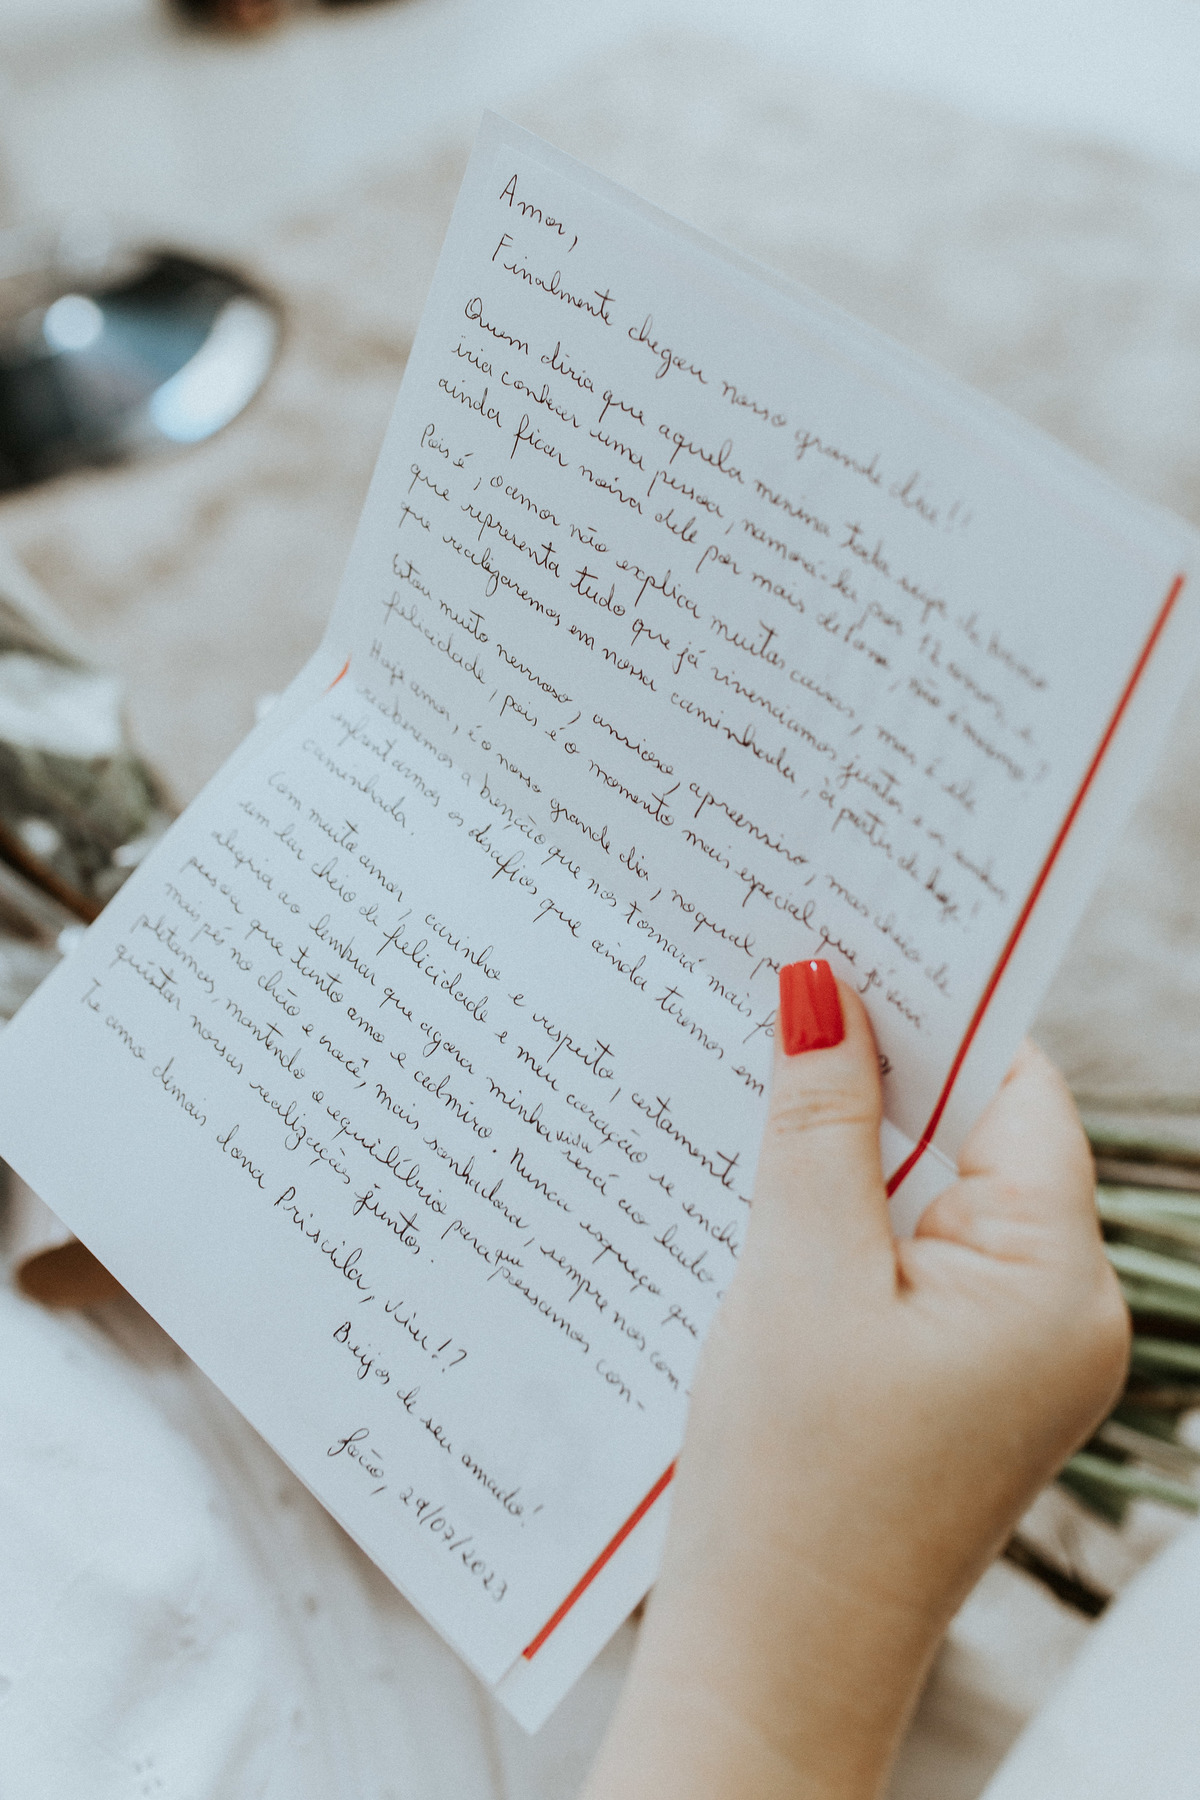 Amor,
Finalmente chegou nosso grande dia!!
Quem diria que aquela menina toda
iria conhecer uma pessoa, namorá-la por 12 anos, e
ainda ficar noiva dele por mais de 1 ano, não é mesmo?
Pois é, o amor não explica muitas coisas, mas é ele
que representa tudo que já vivenciamos juntos e os sonhos
que realizaremos em nossa caminhada, à partir de hoje!
Estou muito nervoso, ansioso, apreensivo, mas cheio de
felicidade, pois é o momento mais especial que já vivi.
Hoje amor, é o nosso grande dia, no qual
receberemos a benção que nos tornará mais
enfrentarmos os desafios que ainda teremos em
caminhada.
Com muito amor, carinho e respeito, certamente
um lar cheio de felicidade e meu coração se enche
alegria ao lembrar que agora minha vida será ao lado
pessoa que tanto amo e admiro. Nunca esqueço que
mais pés no chão e você, mais sonhadora, sempre nos com-
pletamos, mantendo o equilíbrio para que possamos con-
quistar nossas realizações juntos.
Te amo demais dona Priscila, viu!?
Beijos de seu amado!
João, 29/07/2023